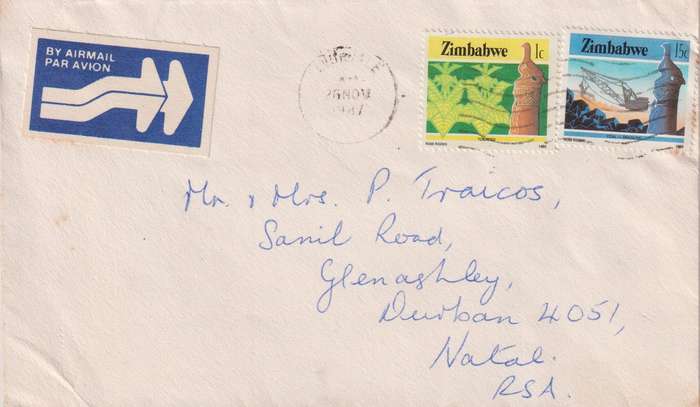 BY AIRMAIL
PAR AVION
26 NOV
1987
Zimbabwe
1c
TOBACCO
Zimbabwe
15c
Mr. & Mrs. P. Traicos,
Sanil Road,
Glenashley,
Durban 4051,
Natal.
RSA.